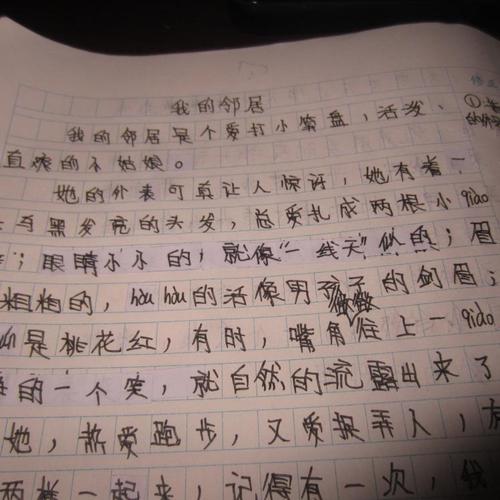 我的邻居
我的邻居是个爱打小算盘,活泼、
直爽的小姑娘。
她的外表可真让人惊讶,她有着一
乌黑发亮的头发,总爱扎成两根小qiào
;眼睛小小的,就像“一线天”似的;眉
粗粗的,hòu hòu的活像男孩子的剑眉;
是桃花红,有时,嘴角微微往上一qiào
的一个笑,就自然的流露出来了
她,热爱跑步,又爱捉弄人,
两样一起来,记得有一次,我